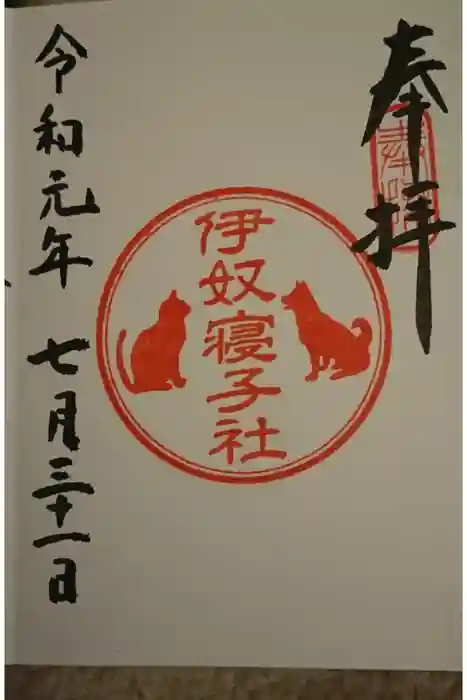 奉拝
奉拝
伊奴寝子社
令和元年 七月三十一日